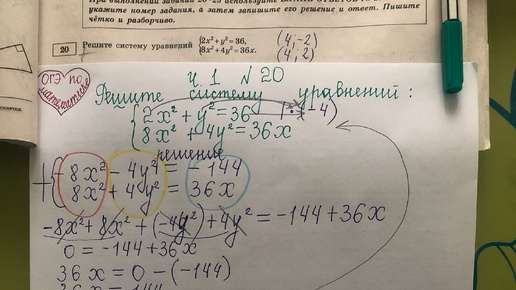 При выполнении заданий 20–25 используйте БЛАНК ОТВЕТОВ
укажите номер задания, а затем запишите его решение и ответ. Пишите
чётко и разборчиво.
20
Решите систему уравнений
2x² + y² = 36,
8x² + 4y² = 36x.
(4, -2)
(4, 2)
ОГЭ по
математике
ч. 1 N 20
Решите систему уравнений:
2x² + y² = 36 | · (-4)
8x² + 4y² = 36x
решение
+ -8x² - 4y² = -144
8x² + 4y² = 36x
-8x² + 8x² + (-4y²) + 4y² = -144 + 36x
0 = -144 + 36x
36x = 0 - (-144)
36x = 144